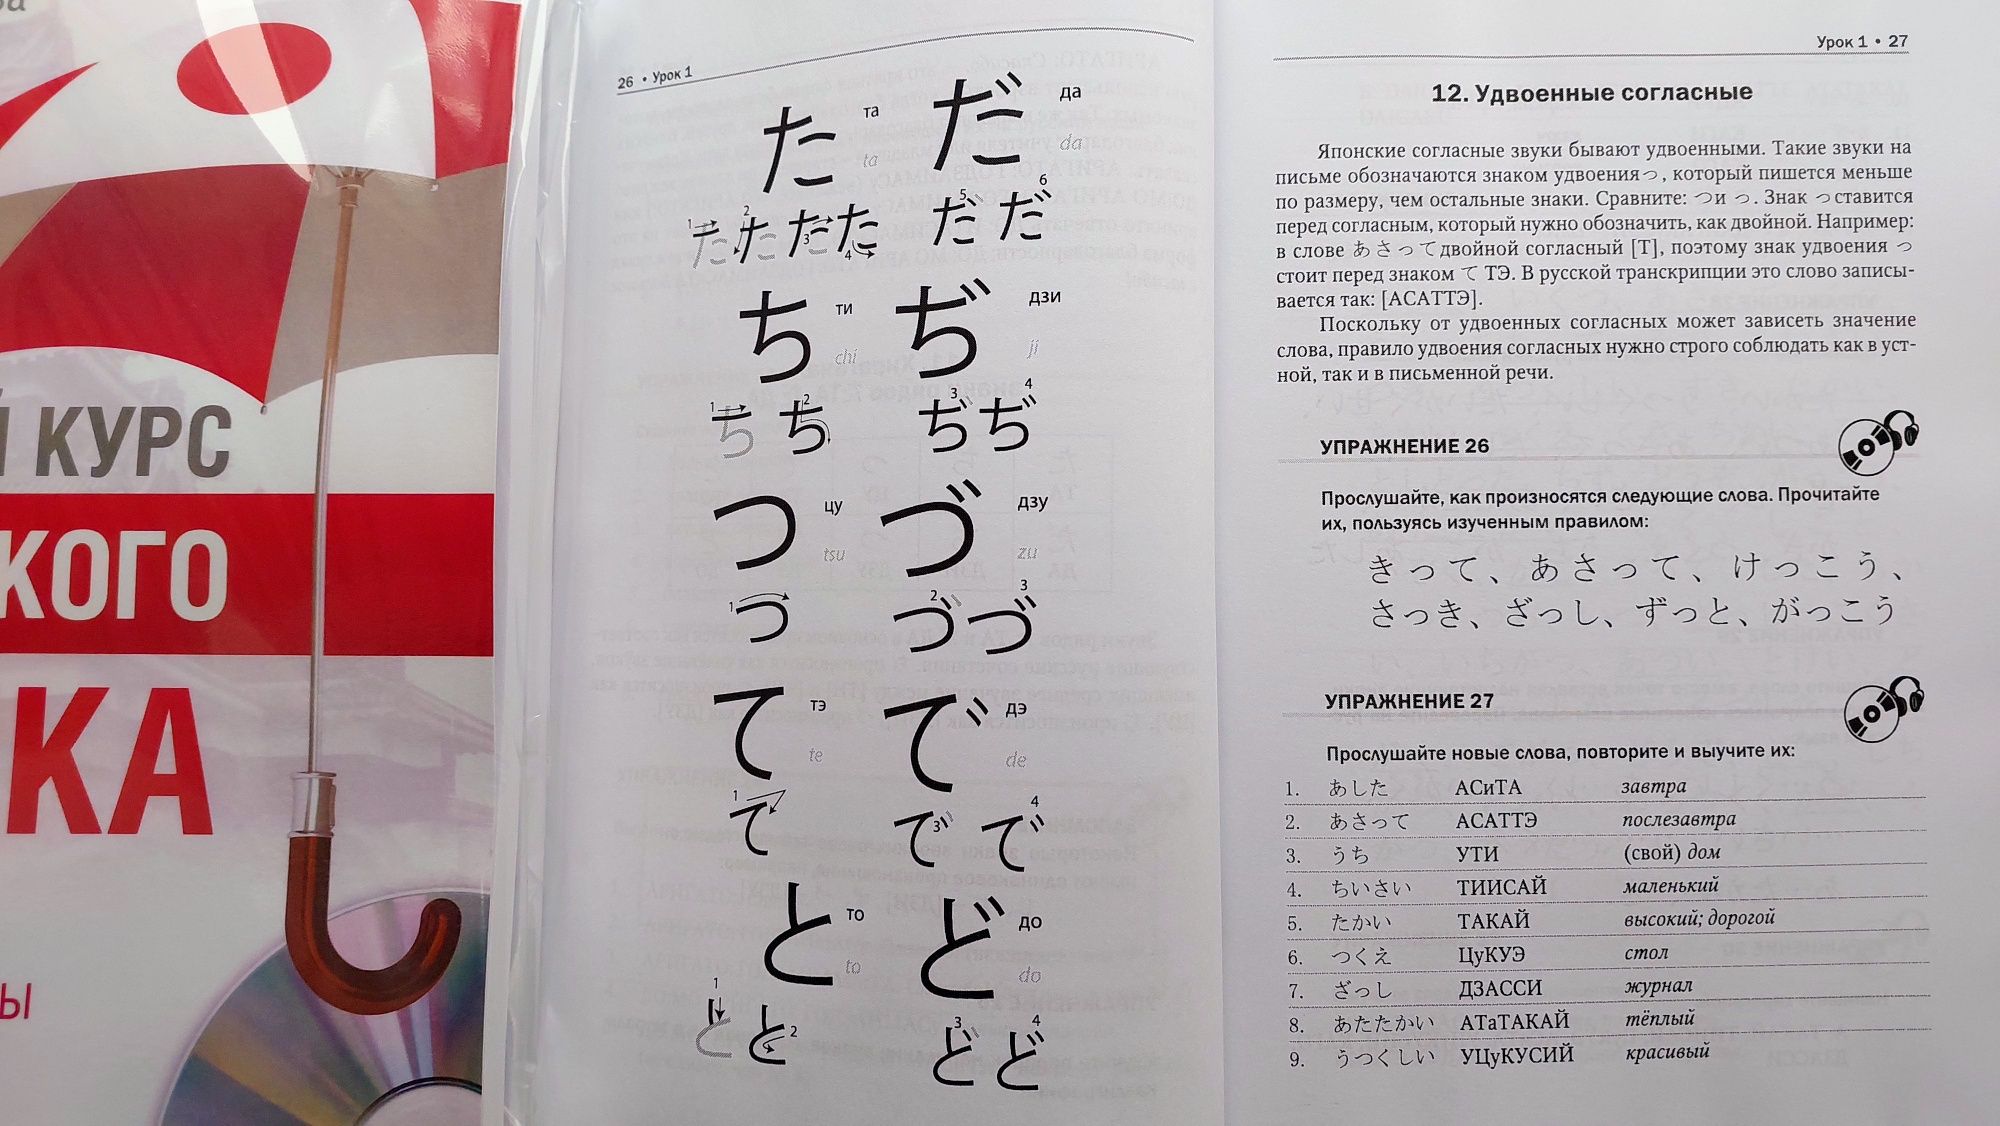 КУРС
КОГО
КА
Ы
26 • Урок 1
た та ta だ да da
1 2 3 4 5 6
た た た た だ だ
ち ти chi ぢ дзи ji
1 2 3 4
ち ち ぢ ぢ
つ цу tsu づ дзу zu
1 2 3
つ づ づ
て тэ te で дэ de
1 3 4
て で で
と то to ど до do
1 2 3 4
と と ど ど
Урок 1 • 27
12. Удвоенные согласные
Японские согласные звуки бывают удвоенными. Такие звуки на
письме обозначаются знаком удвоения っ, который пишется меньше
по размеру, чем остальные знаки. Сравните: つ и っ. Знак っ ставится
перед согласным, который нужно обозначить, как двойной. Например:
в слове あさって двойной согласный [Т], поэтому знак удвоения っ
стоит перед знаком て ТЭ. В русской транскрипции это слово записы-
вается так: [АСАТТЭ].
Поскольку от удвоенных согласных может зависеть значение
слова, правило удвоения согласных нужно строго соблюдать как в уст-
ной, так и в письменной речи.
УПРАЖНЕНИЕ 26
Прослушайте, как произносятся следующие слова. Прочитайте
их, пользуясь изученным правилом:
きって、あさって、けっこう、
さっき、ざっし、ずっと、がっこう
УПРАЖНЕНИЕ 27
Прослушайте новые слова, повторите и выучите их:
1. あした АСиТА завтра
2. あさって АСАТТЭ послезавтра
3. うち УТИ (свой) дом
4. ちいさい ТИИСАЙ маленький
5. たかい ТАКАЙ высокий; дорогой
6. つくえ ЦуКУЭ стол
7. ざっし ДЗАССИ журнал
8. あたたかい АТаТАКАЙ тёплый
9. うつくしい УЦуКУСИЙ красивый